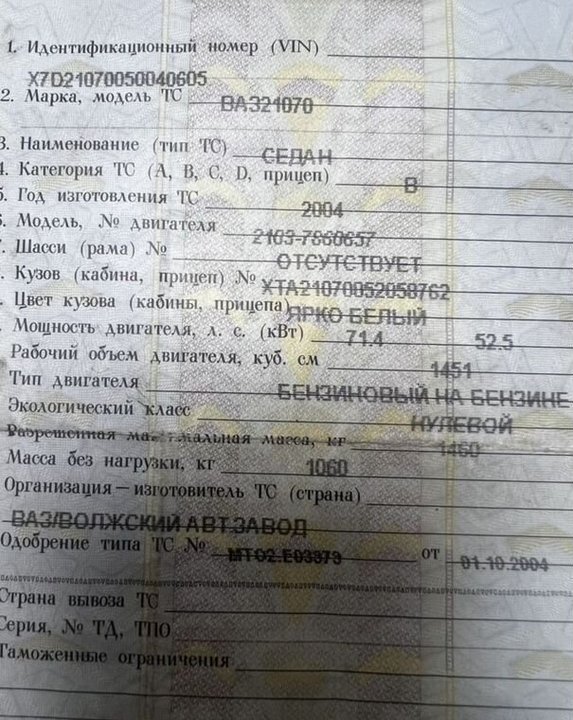 1. Идентификационный номер (VIN)
X7D21070050040605
2. Марка, модель ТС ВАЗ21070
3. Наименование (тип ТС) СЕДАН
4. Категория ТС (A, B, C, D, прицеп) B
5. Год изготовления ТС 2004
6. Модель, № двигателя 2103-7860657
. Шасси (рама) № ОТСУТСТВУЕТ
. Кузов (кабина, прицеп) № XTA21070052058762
. Цвет кузова (кабины, прицепа) ЯРКО БЕЛЫЙ
Мощность двигателя, л. с. (кВт) 71.4 52.5
Рабочий объем двигателя, куб. см 1451
Тип двигателя БЕНЗИНОВЫЙ НА БЕНЗИНЕ
Экологический класс НУЛЕВОЙ
Разрешенная максимальная масса, кг 1460
Масса без нагрузки, кг 1060
Организация—изготовитель ТС (страна)
ВАЗ/ВОЛЖСКИЙ АВТ.ЗАВОД
Одобрение типа ТС № МТ02.Е03373 от 01.10.2004
Страна вывоза ТС
Серия, № ТД, ТПО
Таможенные ограничения